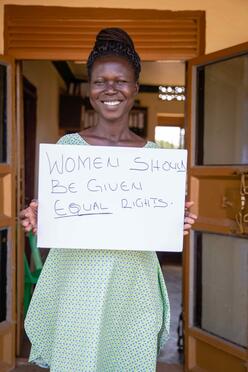 WOMEN SHOULD
BE GIVEN
EQUAL RIGHTS.